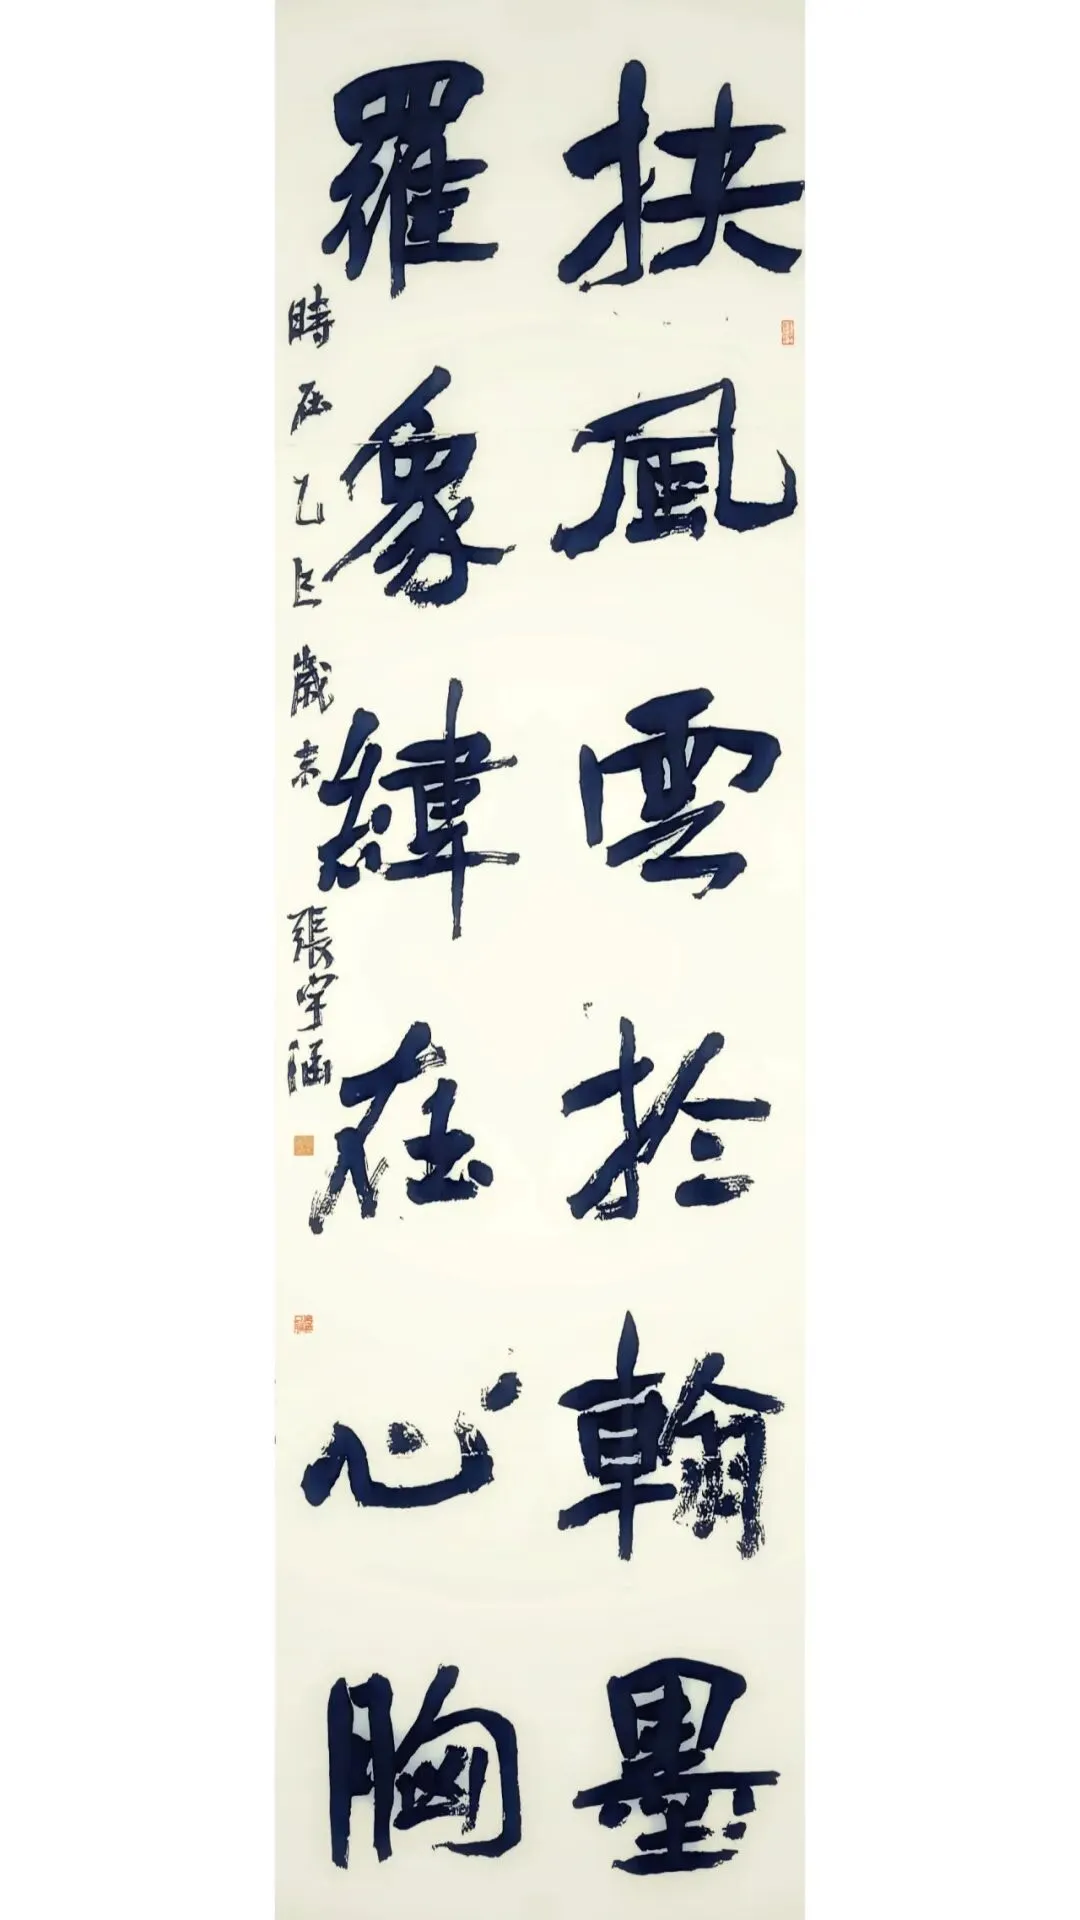 扶風雲於翰墨
羅象緯在心胸
時在乙巳歲末 張宇涵